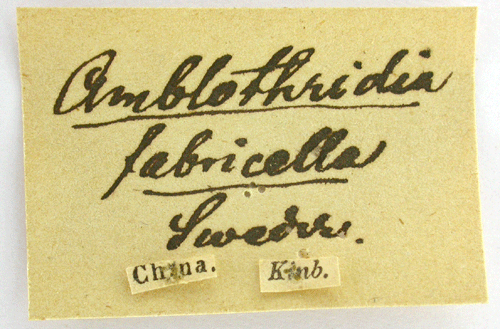 Amblothridia
fabricella
Swedr.
China. Kinb.